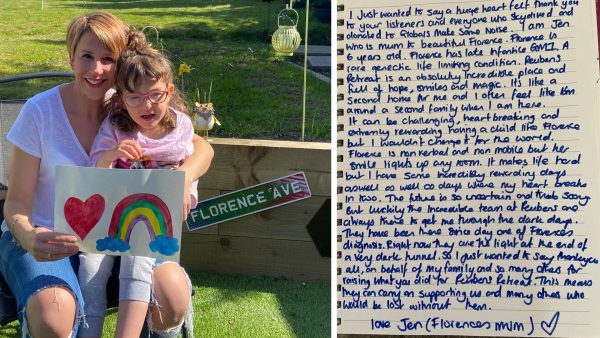 FLORENCE AVE
I Just wanted to say a huge heart felt thank you
to your listeners and everyone who skydived and
donated to Globals Make Some Noise. I am Jen
who is mum to beautiful Florence. Florence is
6 years old. Florence has late Infantile GM1. A
rare genetic life limiting condition. Reubens
Retreat is an absolutely Incredible place and
full of hope, smiles and magic. Its like a
Second home for me and I often feel like Im
around a second family when I am here.
It can be challenging, heart breaking and
extremely rewarding having a child like Florence
but I wouldn't change it for the world.
Florence is non verbal and non mobile but her
smile lights up any room. It makes life hard
but I have some incredibly rewarding days
aswell as well as days where my heart breaks
in two. The future is so uncertain and
but luckily the Incredible team at Reubens are
always there to get me through the dark days.
They have been there since day one of Florences
diagnosis. Right now they are the light at the end of
a very dark tunnel. So I just wanted to say thankyou
all, on behalf of my family and so many others for
raising what you did for Reubens Retreat. This means
they can carry on supporting us and many others who
would be lost without them.
love Jen (Florences mum)